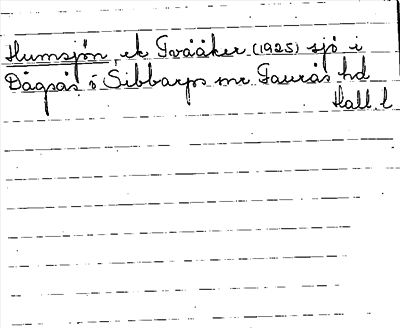 Humsjön, ek Tvååker (1925) sjö i
Dagsås o Sibbarps snr Faurås hd
Hall. l